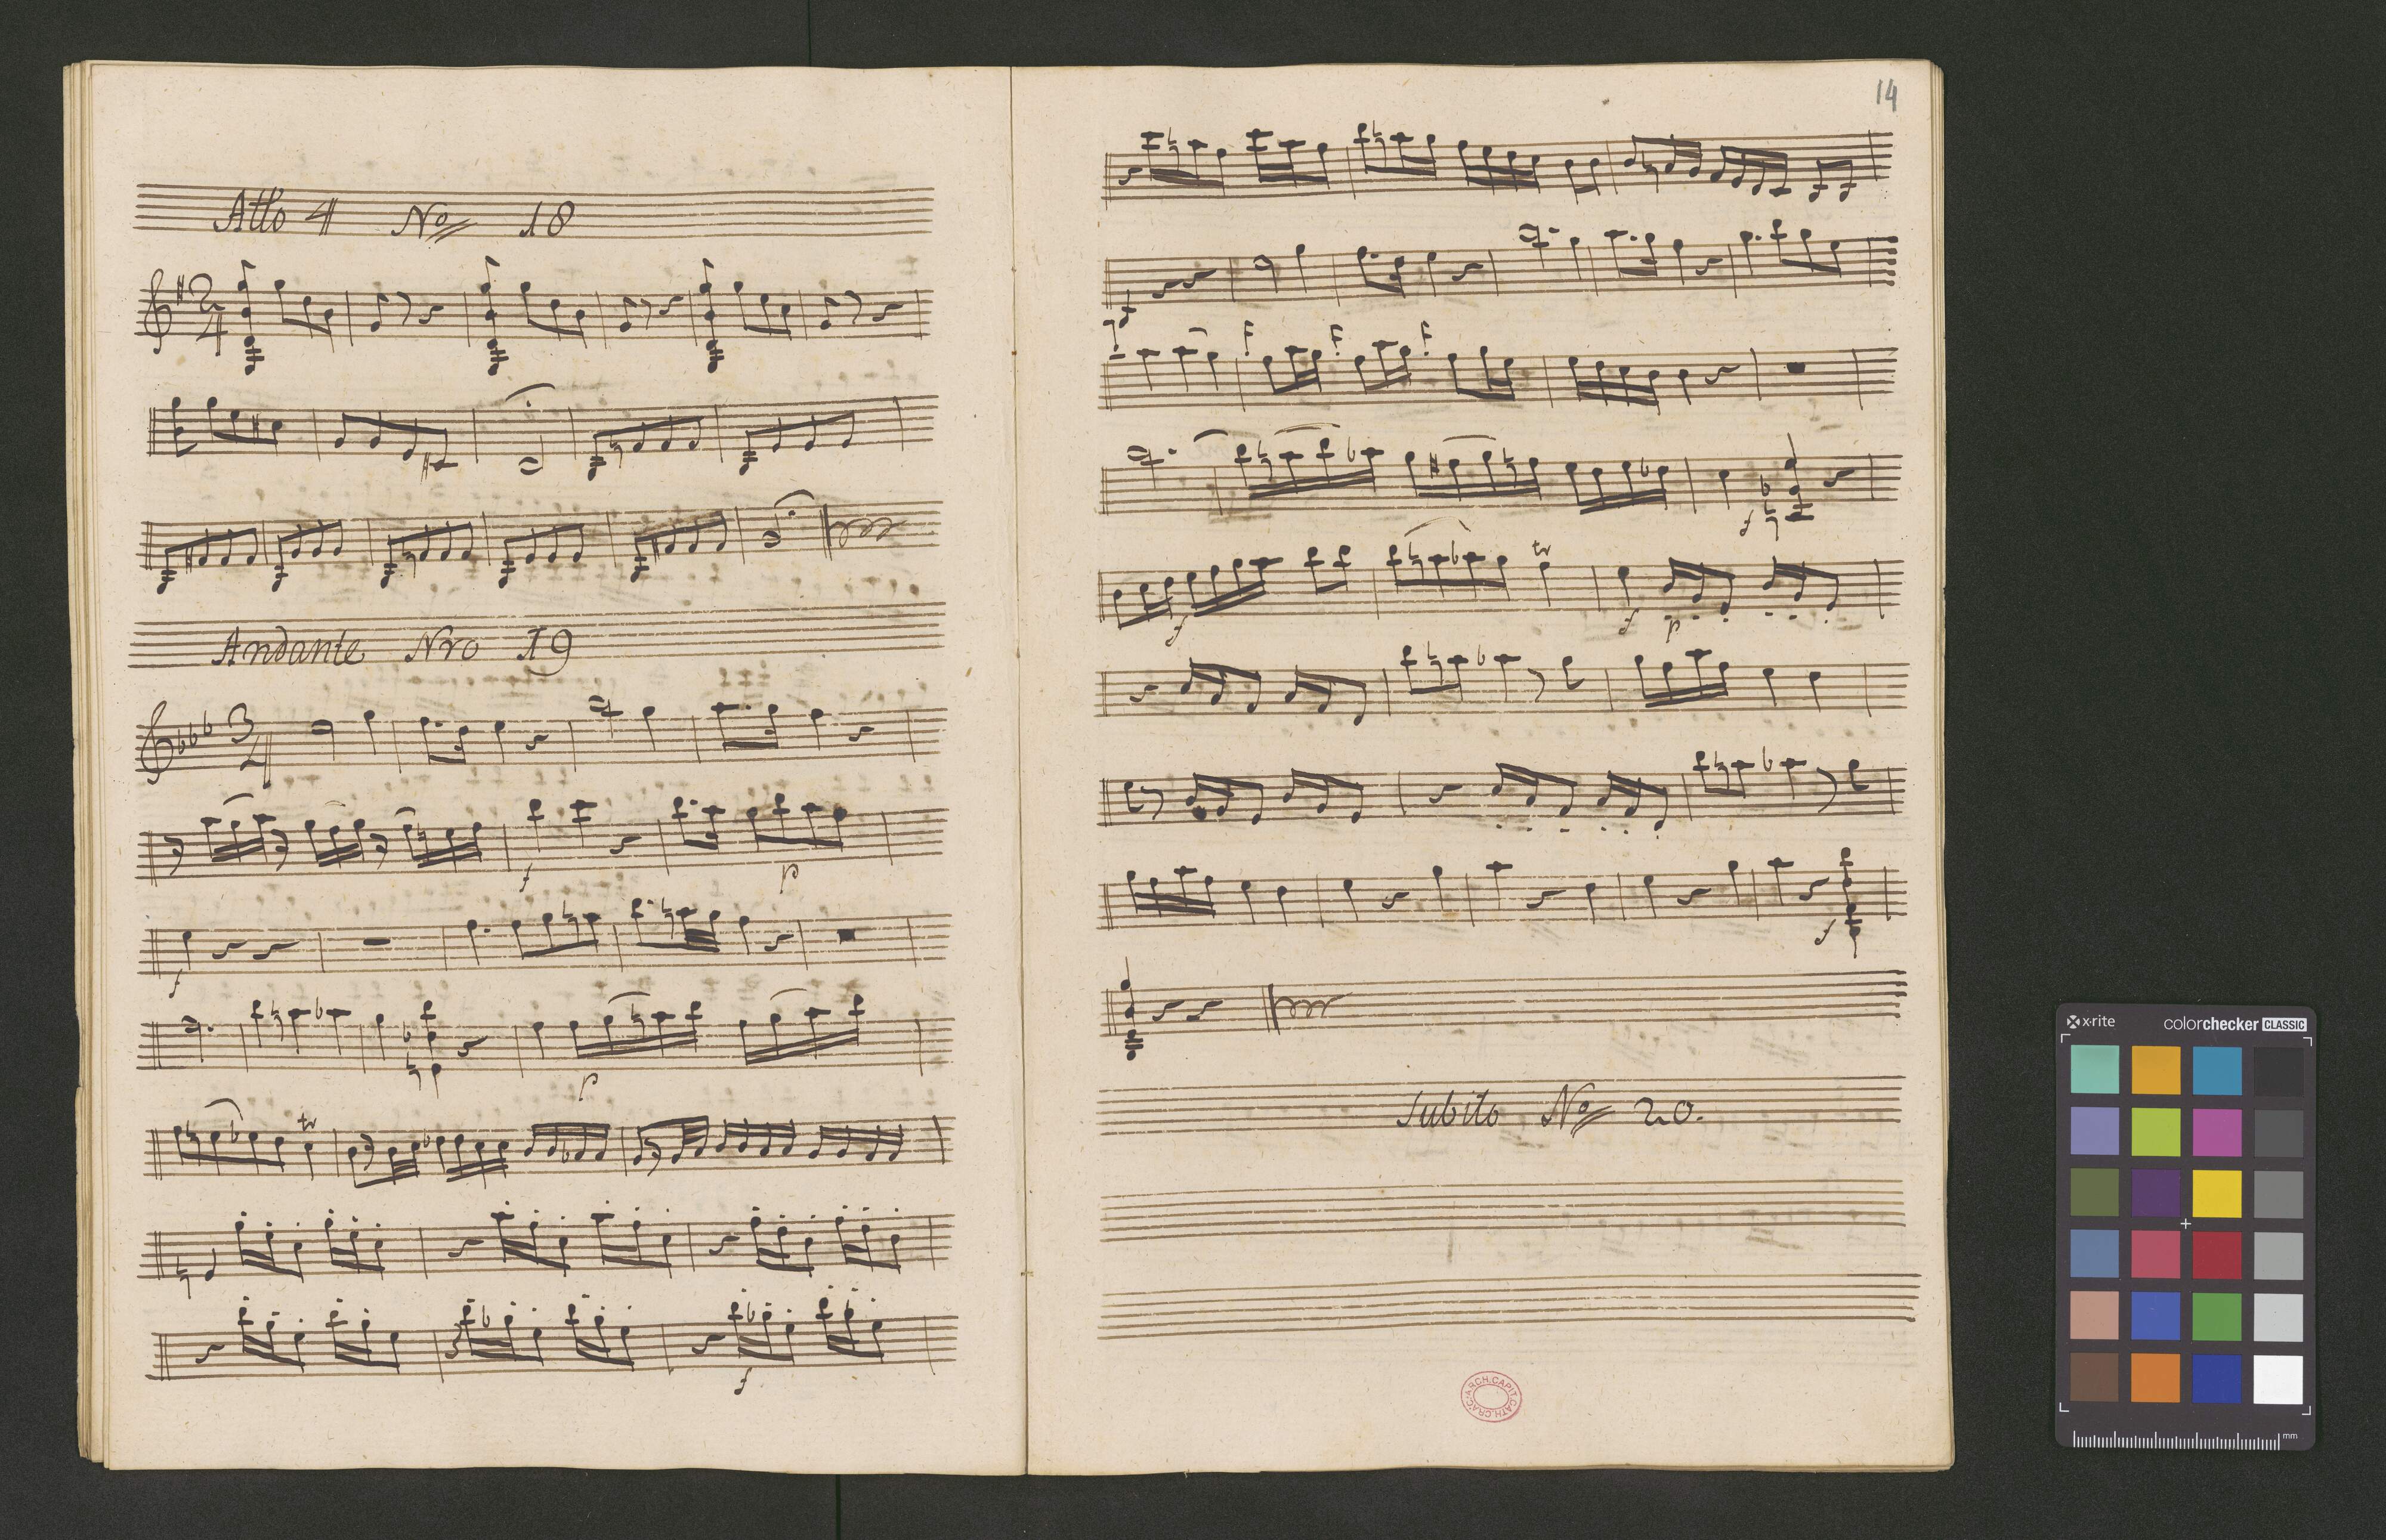 Atto 4 No 18
2
4
Andante Nro 19
3
4
f
p
f
p
tr
tr
f
14
F F F
f
tr
f
f p
f
Subito No 20.
ARCH. CAPIT. CATH. CRAC.
x·rite colorchecker CLASSIC
mm